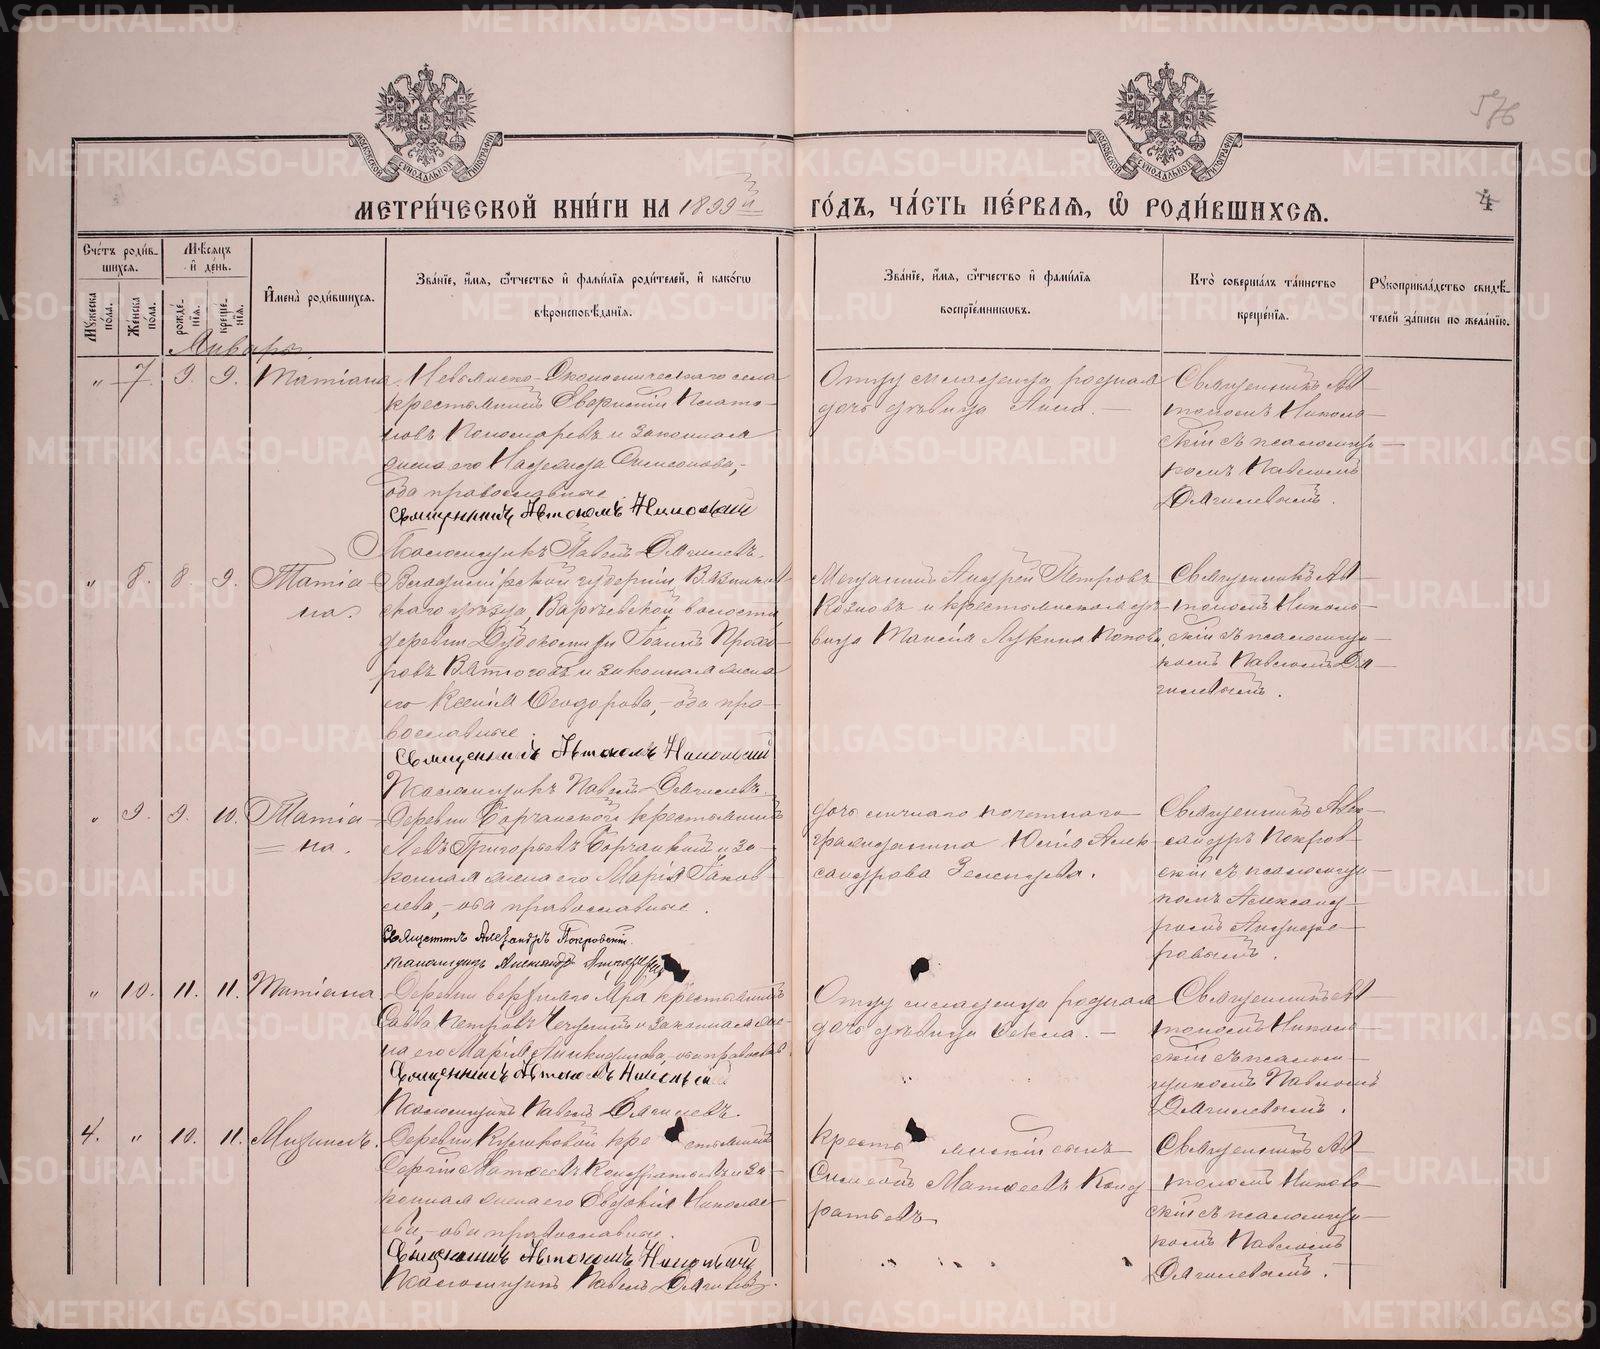 576
МОСКОВСКОЙ СѴНОДАЛЬНОЙ ТИПОГРАФІИ
МОСКОВСКОЙ СѴНОДАЛЬНОЙ ТИПОГРАФІИ
МЕТРИ́ЧЕСКОЙ КНИ́ГИ НА 1899й ГО́ДЪ, ЧА́СТЬ ПЕ́РВАЯ, Ѡ РОДИ́ВШИХСЯ.
4
Сче́тъ роди́в-
шихся.
Мѣ́сяцъ
и҆ де́нь.
Му́жеска по́ла.
Же́нска по́ла.
рожде́-
нїя.
креще́-
нїя.
И҆мена̀ роди́вшихся.
Зва́нїе, и҆́мя, ѻ҆́тчество и҆ фамилїѧ роди́телей, и҆ како́гѡ
вѣроисповѣ́данїя.
Зва́нїе, и҆́мя, ѻ҆́тчество и҆ фами́лїя
воспрїе́мникѡвъ.
Кто̀ соверша́лъ та́инство
креще́нїя.
Рꙋкоприкла́дство свидѣ́-
телей за́писи по жела́нїю.
Январь.
„ 7. 9. 9. Татіана
Невьянско-Экономическаго села
крестьянинъ Платo-
новъ Пономаревъ и законная
жена его Надежда Симеонова,-
оба православные.
Священникъ Автономъ Никольскій
Псаломщикъ Павелъ Дягилевъ.
Отцу младенца родная
дочь дѣвица Анна. —
Священникъ Ав-
тономъ Николь-
скій съ псаломщи-
комъ Павломъ
Дягилевымъ.
„ 8. 8. 9. Татіа-
на.
Владимірской губерніи Вязников-
скаго уѣзда, волости,
деревни Іоаннъ Прохо-
ровъ и законная жена
его Ксенія Ѳеодорова,- оба пра-
вославные.
Священникъ Автономъ Никольскій
Псаломщикъ Павелъ Дягилевъ.
Мѣщанинъ Андрей Петровъ
и крестьянская дѣ-
вица Таисія Лукина Попова.
Священникъ Ав-
тономъ Николь-
скій съ псаломщи-
комъ Павломъ Дя-
гилевымъ.
„ 9. 9. 10. Татіа-
на.
Деревни крестьянинъ
Левъ Григорьевъ и за-
конная жена его Марія Іаков-
лева,- оба православные.
Священникъ Александръ Покровскій.
Псаломщикъ Александръ
Дочь личнаго почетнаго
гражданина Юлія Алек-
сандрова Зеленцева.
Священникъ Алек-
сандръ Покров-
скій съ псаломщи-
комъ Александ-
ромъ
„ 10. 11. 11. Татіана
Деревни крестьянинъ
Савва Петровъ и законная же-
на его Марія оба православ.
Священникъ Автономъ Никольскій
Псаломщикъ Павелъ Дягилевъ.
Отцу младенца родная
дочь дѣвица Ѳекла. —
Священникъ Ав-
тономъ Николь-
скій съ псалом-
щикомъ Павломъ
Дягилевымъ.
4. „ 10. 11. Михаилъ.
Деревни Куликовой крестьянинъ
Сергій Матѳеевъ Кондратьевъ и за-
конная жена его Евдокія Николае-
ва,- оба православные.
Священникъ Автономъ Никольскій
Псаломщикъ Павелъ Дягилевъ.
Крестьянскій сынъ
Симеонъ Матѳеевъ Конд-
ратьевъ
Священникъ Ав-
тономъ Николь-
скій съ псаломщи-
комъ Павломъ
Дягилевымъ.
METRIKI.GASO-URAL.RU